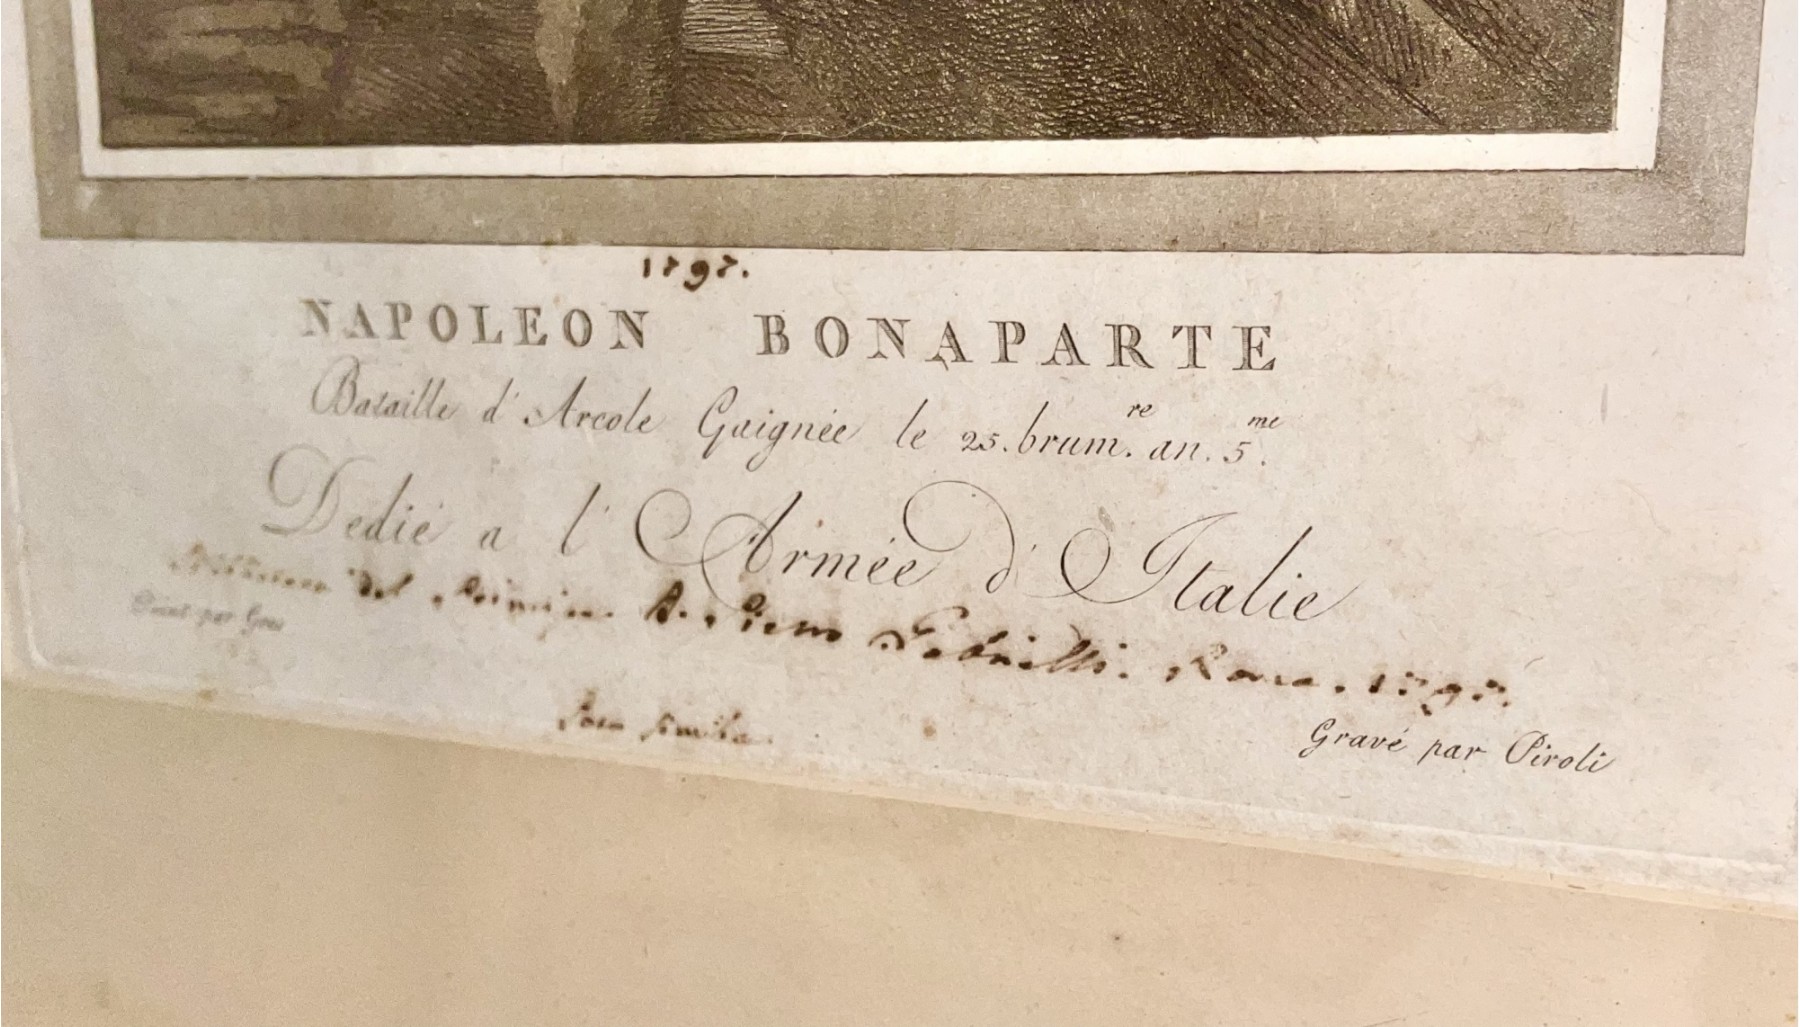 1797.
NAPOLEON BONAPARTE
Bataille d'Arcole Gaignée le 25. brum.re an. 5.me
Dedié a l'Armée d'Italie
del Principe Gabrielli. Roma. 1797.
Peint par Gros
Gravé par Piroli